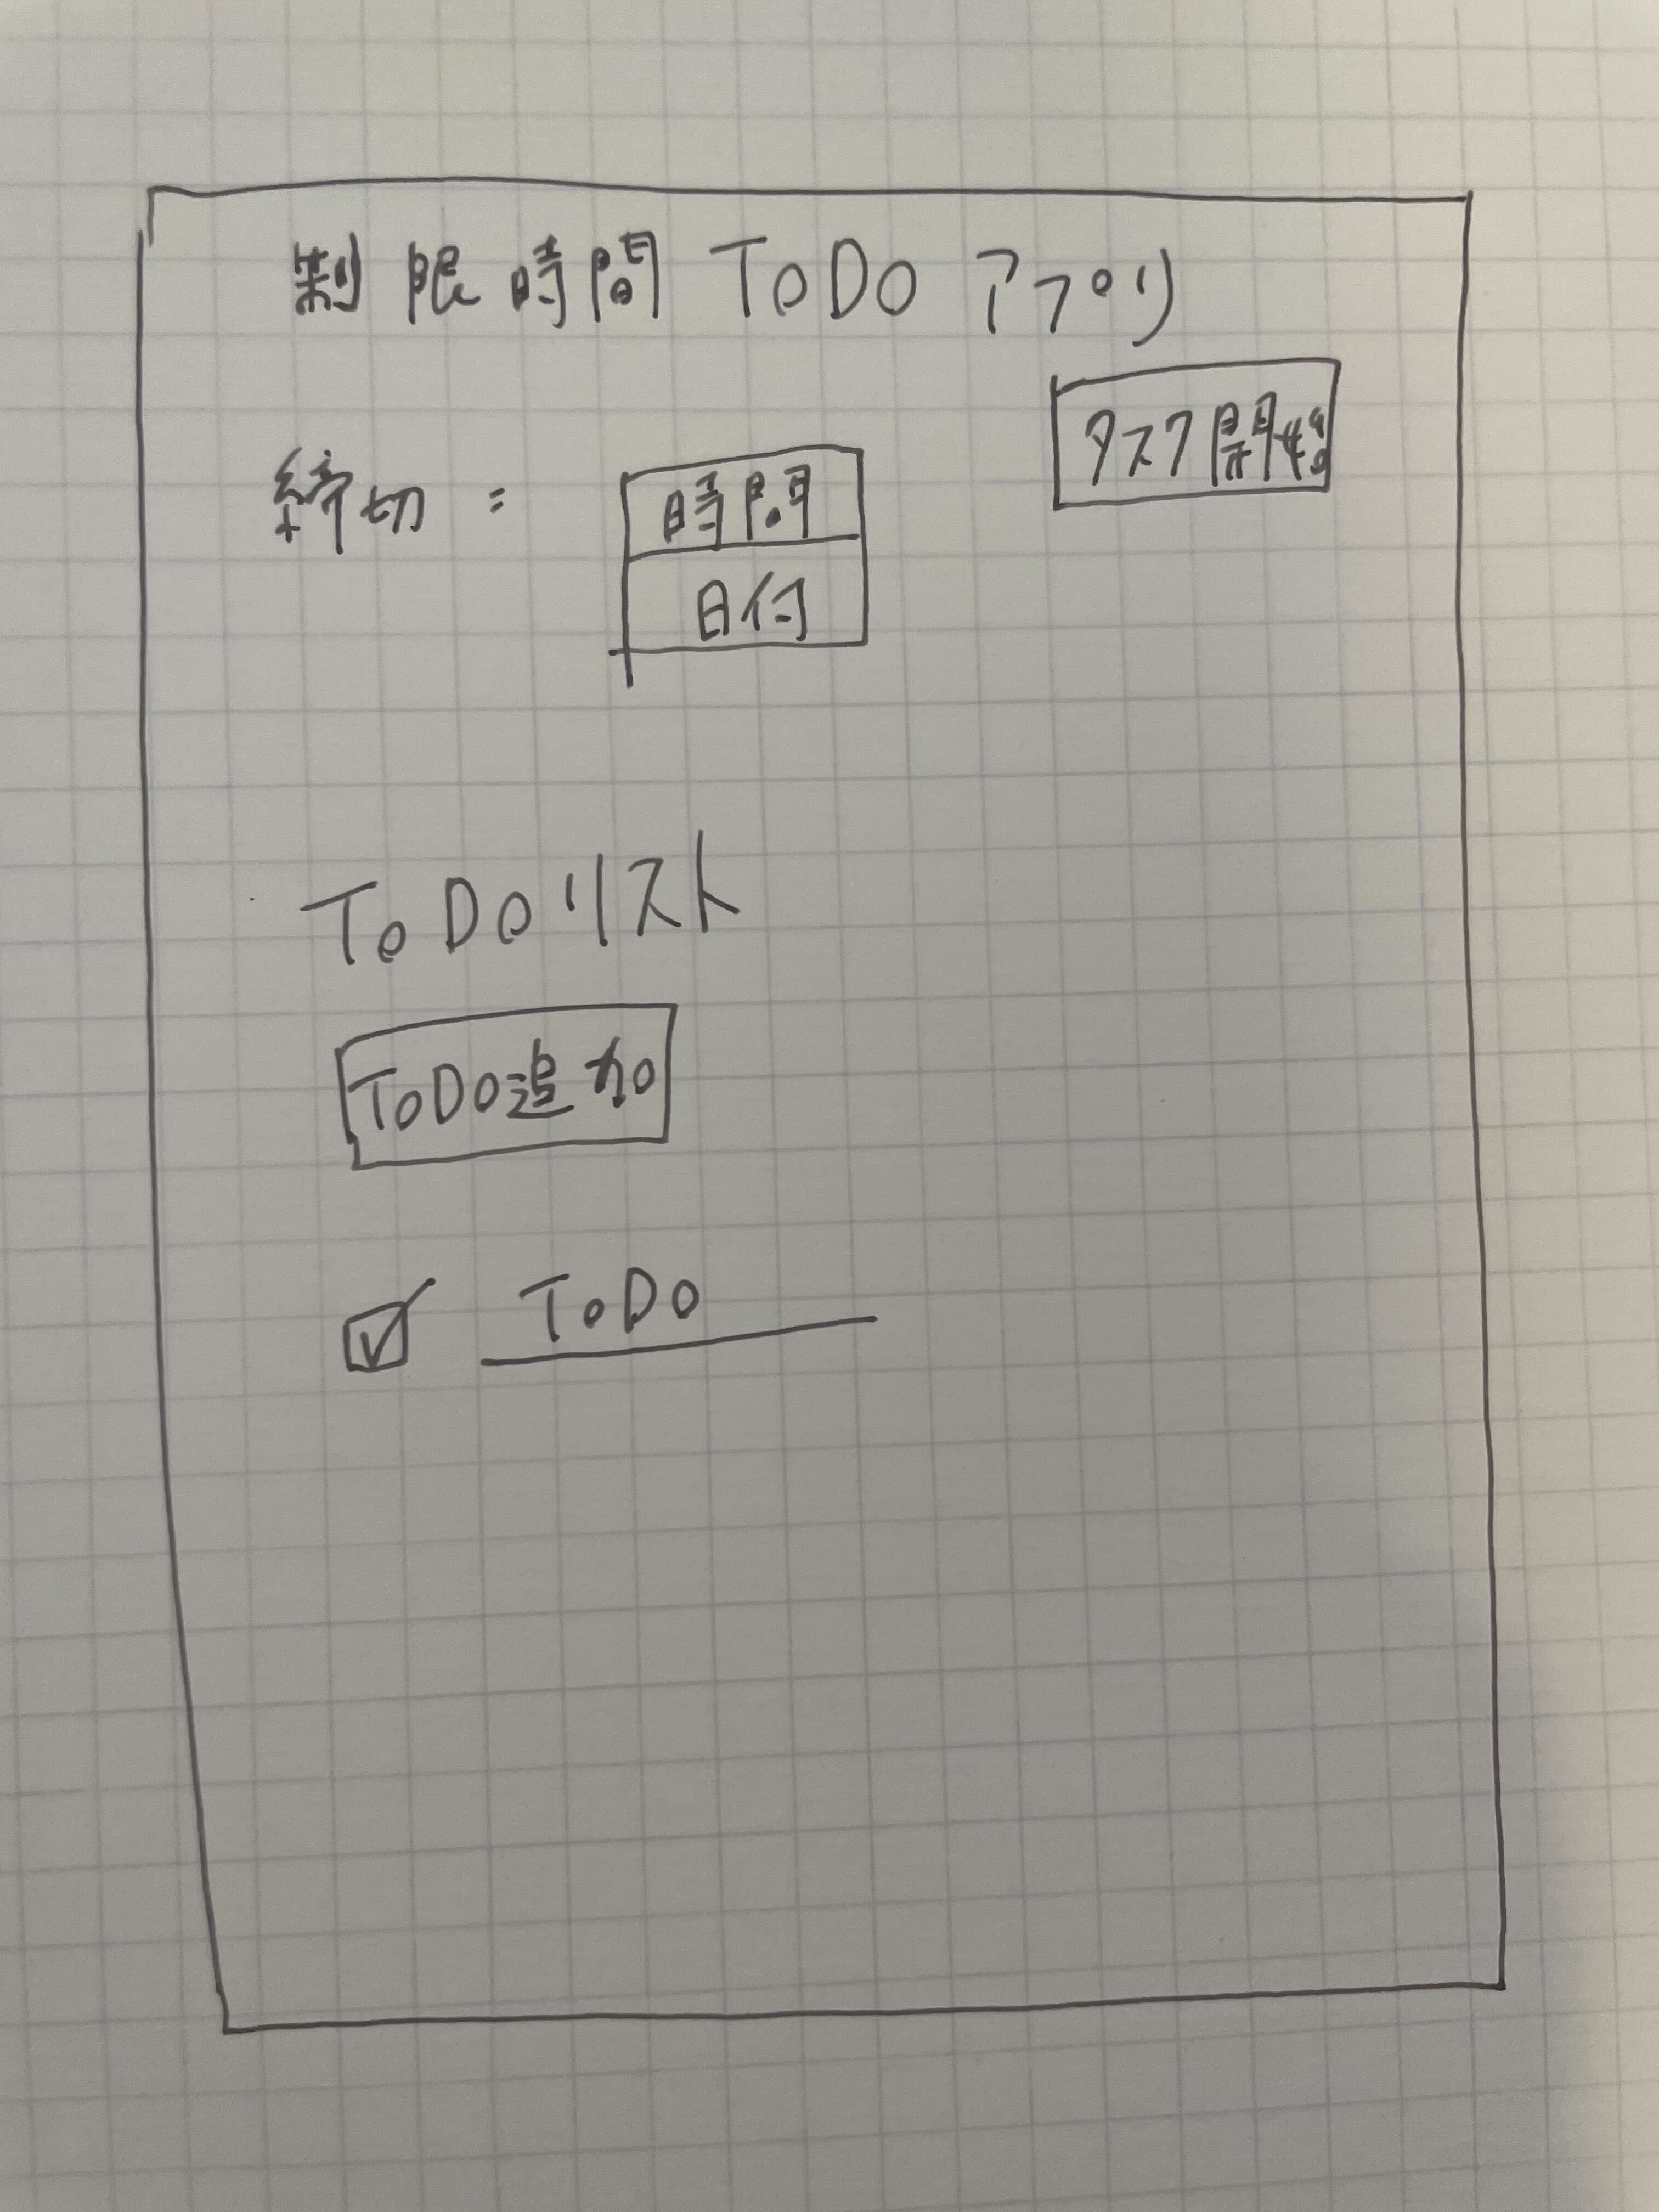 制限時間 ToDo アプリ
タスク開始
締切：
時間
日付
ToDoリスト
ToDo追加
ToDo